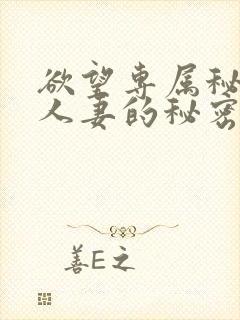 欲望专属秘
人妻的秘密
善E之